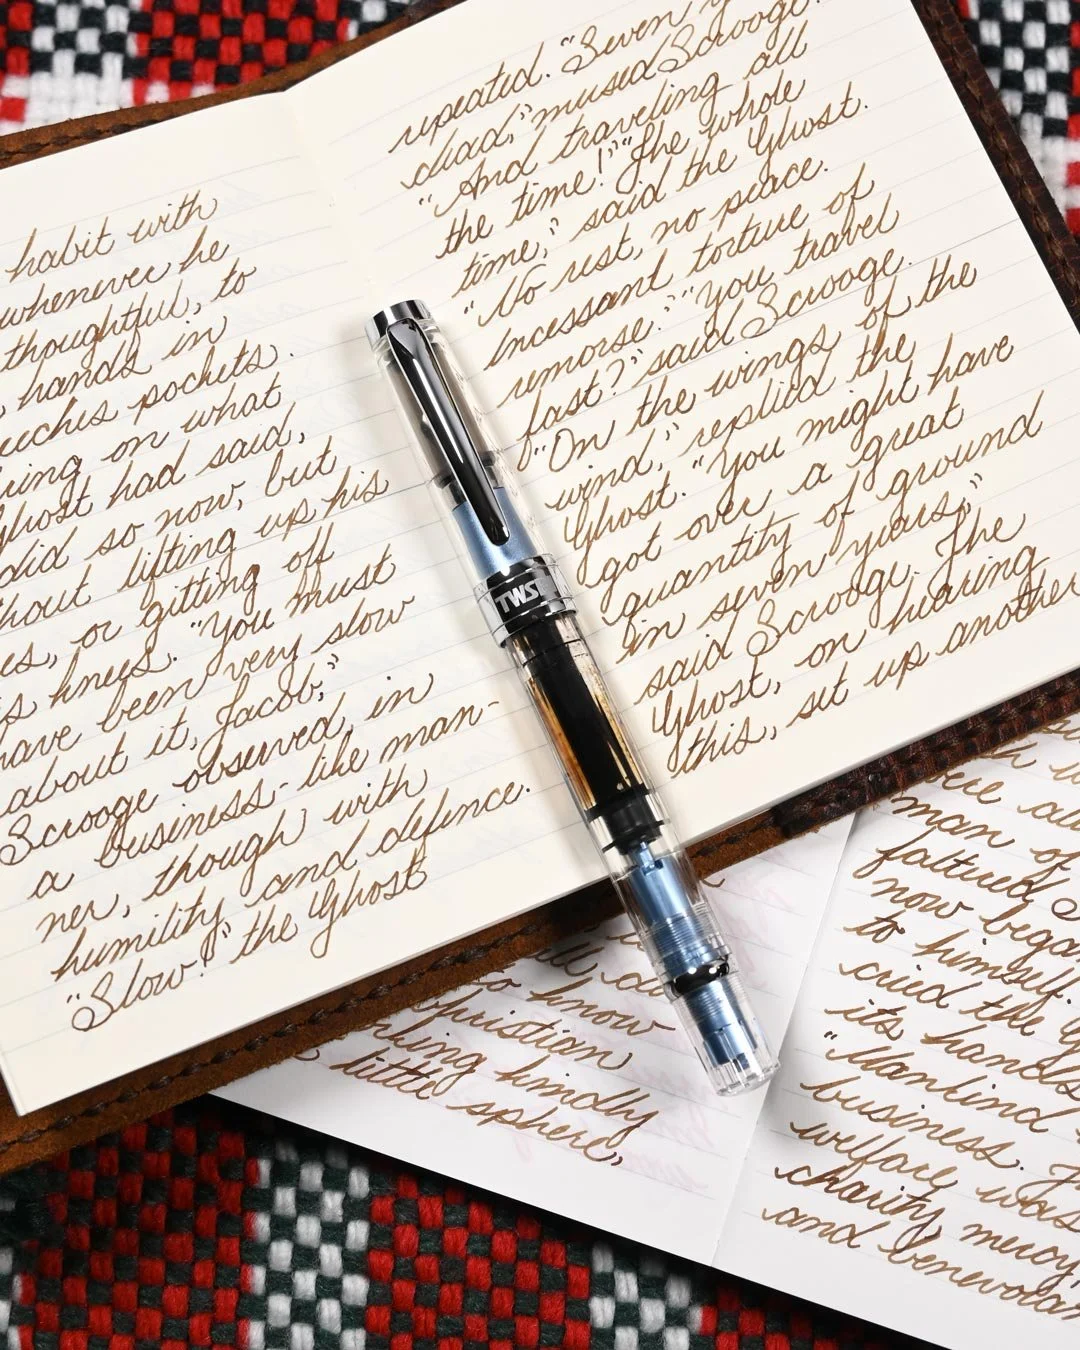 habit with
whenever he
thoughtful, to
hands in
eeches pockets.
ring on what
Ghost had said,
did so now, but
thout lifting up his
es, or gitting off
s knees. "You must
have been very slow
about it, Jacob,"
Scrooge observed, in
a business-like man-
ner, though with
humility and defence.
"Slow!" the Ghost
repeated. "Seven
dead," mused Scrooge.
"And traveling all
the time!" "The whole
time," said the Ghost.
"No rest, no peace.
Incessant torture of
remorse." "You travel
fast?" said Scrooge.
"On the wings of the
wind," replied the
Ghost. "You might have
got over a great
quantity of ground
in seven years,"
said Scrooge. The
Ghost, on hearing
this, set up another
TWSBI
to know
Christian
rking kindly
little sphere,
were all
man of
faltered S
now began
to himself.
cried the G
its hands
"Mankind
business. T
welfare was
charity, mercy,
and benevolen